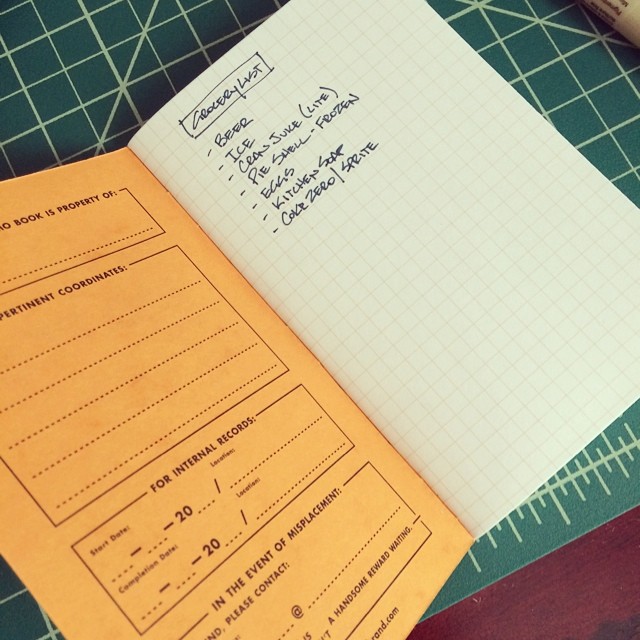 GROCERY LIST
- BEER
- ICE
- CRAN-JUICE (LITE)
- PIE SHELL - FROZEN
- EGGS
- KITCHEN SOAP
- COKE ZERO / SPRITE
MO BOOK IS PROPERTY OF:
PERTINENT COORDINATES:
FOR INTERNAL RECORDS:
Start Date:
Location:
– – 20 /
Completion Date:
Location:
– – 20 /
IN THE EVENT OF MISPLACEMENT:
PLEASE CONTACT:
@
A HANDSOME REWARD WAITING.